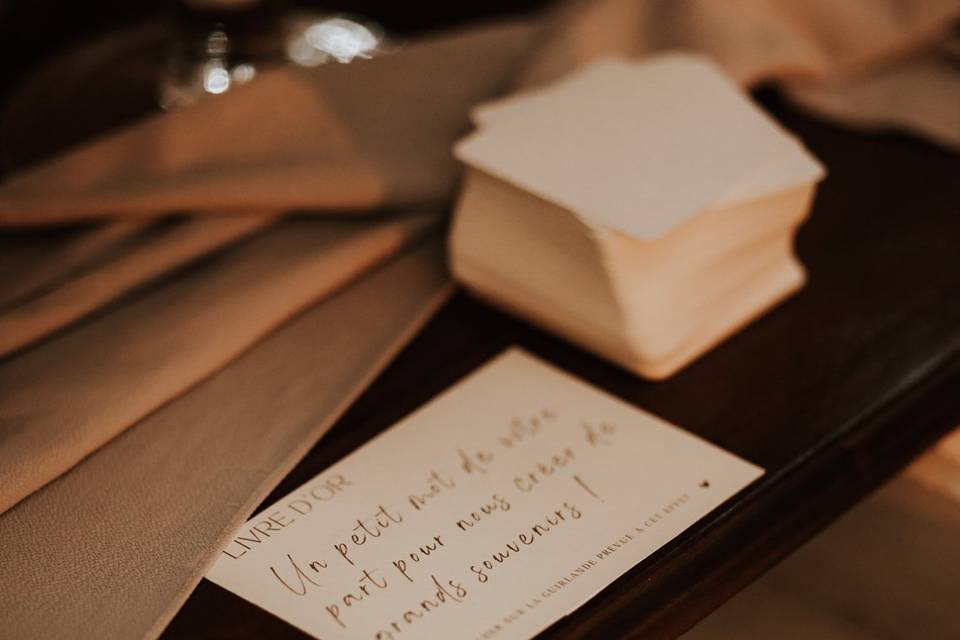 LIVRE D'OR
Un petit mot de votre
part pour nous créer de
grands souvenirs !
SUR LA GUIRLANDE PRÉVUE À CET EFFET